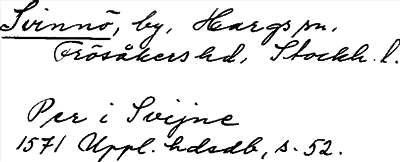 Svinnö, by, Hargs sn,
Frösåkers hd, Stockh. l.
Per i Svijne
1571 Uppl. hdsdb, s. 52.